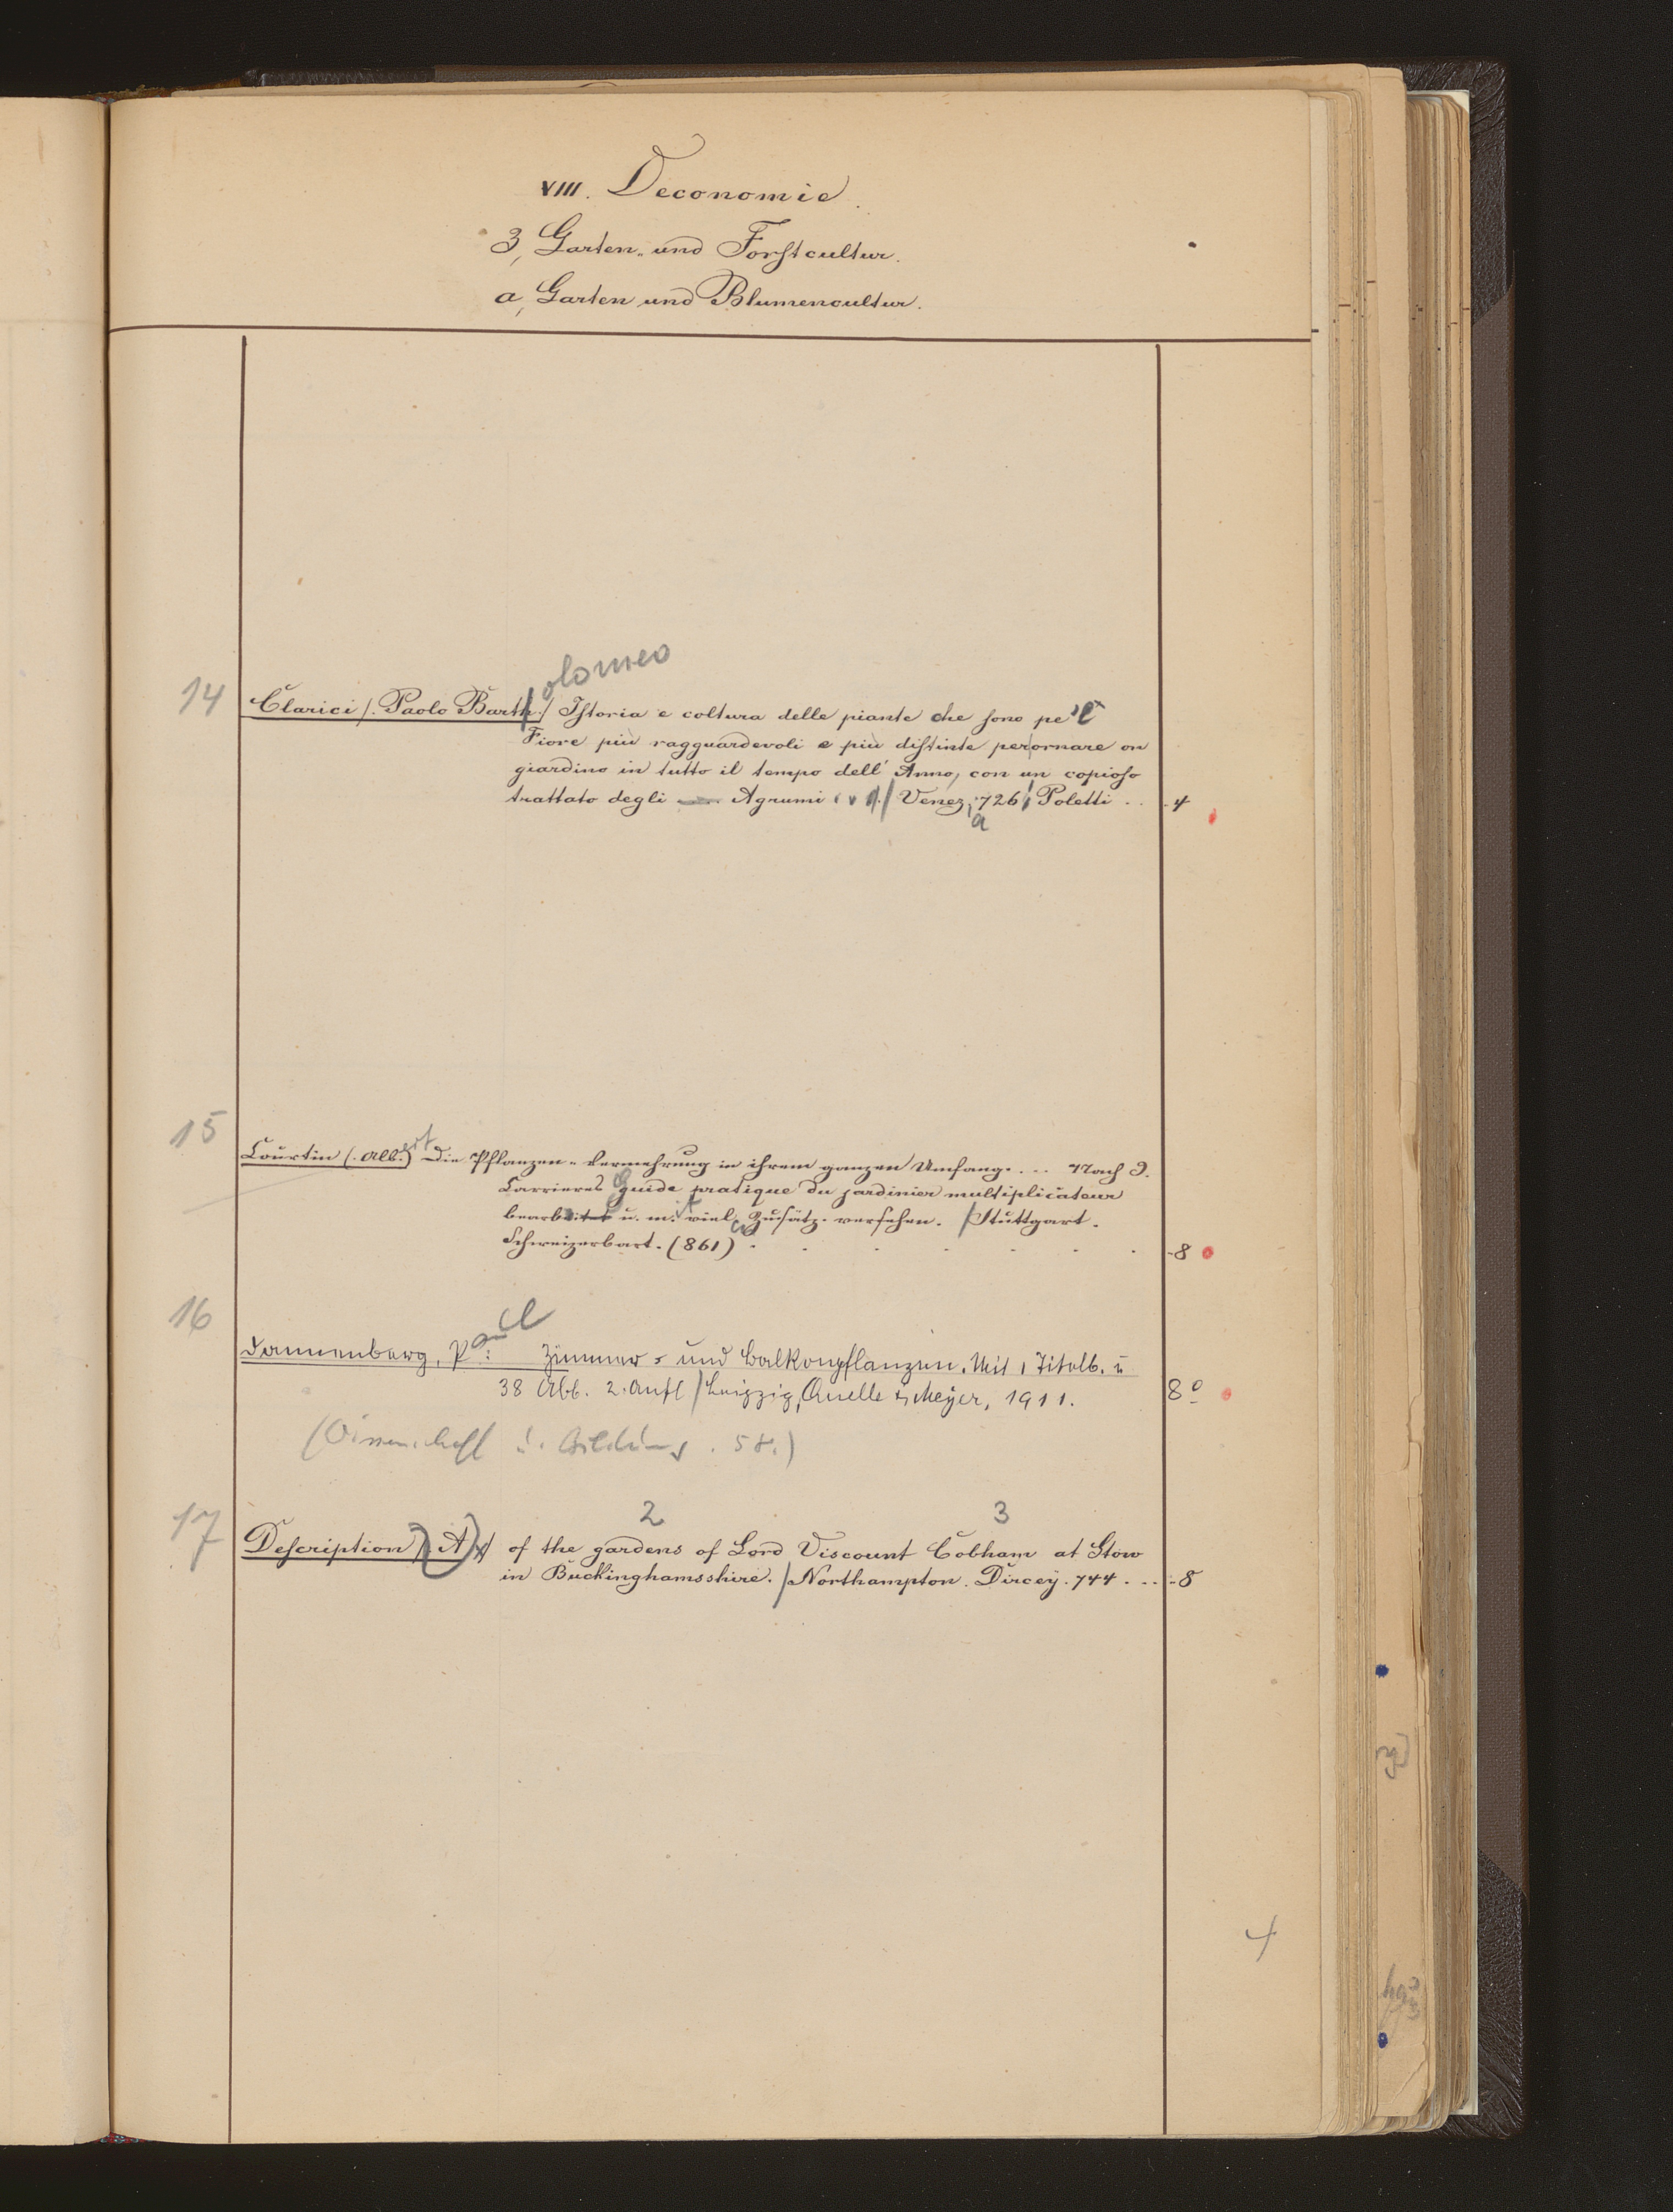 VIII. Oeconomie.
3, Garten- und Forstcultur.
a, Garten und Blumencultur.
olomeo
14 Clarici /. Paolo Barth./ Istoria e coltura delle piante che sono pe'l
Fiore più ragguardevoli e più distinte per ornare on
giardino in tutto il tempo dell' Anno, con un copioso
trattato degli Agrumi Venez, 726, Poletti .. 4
a
15 Courtin (. Alb.) ert Die Pflanzen-Vermehrung in ihrem ganzen Umfang. ... Nach J.
Carrieres guide pratique du jardinier multiplicateur
bearbeitet u. m. viel. Zusätz. versehen. / Stuttgart.
Schweizerbart. (861) 8
16 Dannenberg, Paul: Zimmer- und Balkonpflanzen. Mit 1 Titelb. u
38 Abb. 2. Aufl / Leipzig, Quelle & Meyer, 1911. 8º
(Wissenschaft u. Bildung. 58.)
2 3
17 Description (. A) of the gardens of Lord Viscount Cobham at Stow
in Buckinghamsshire. / Northampton. Dircey. 744 ... 8
4